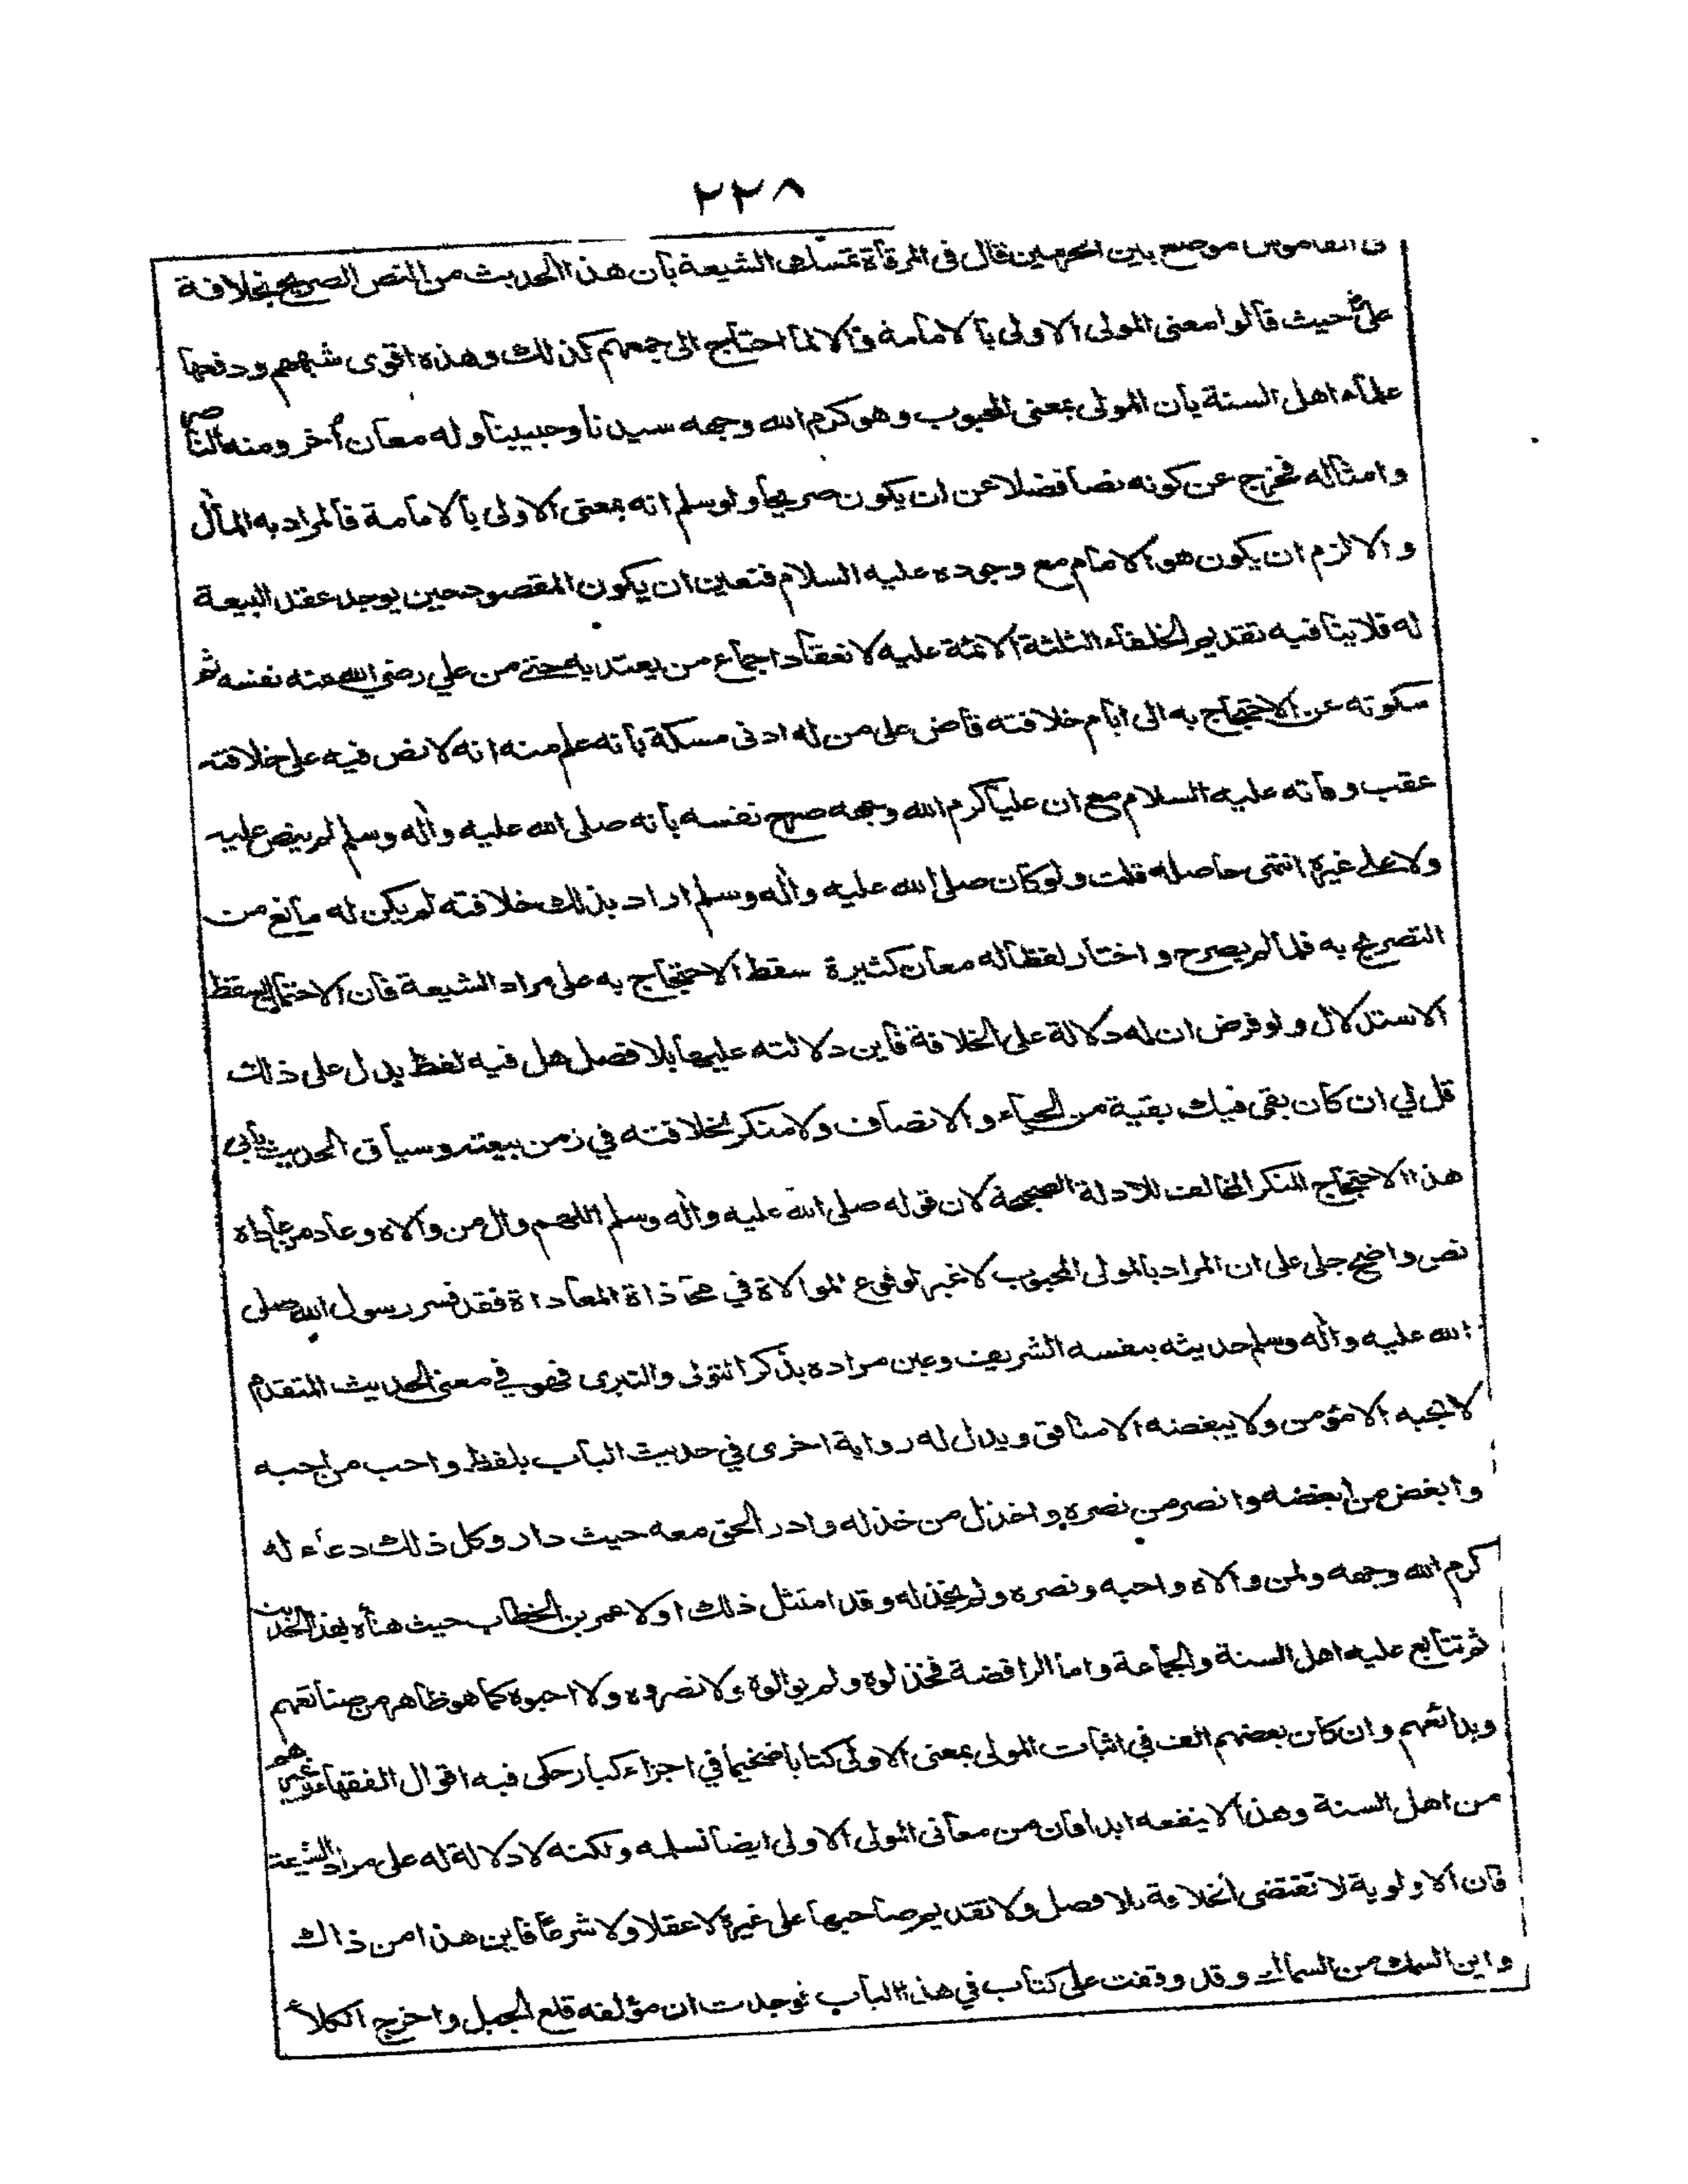 ٢٢٨
فى القاموس موضع بين الحرمين قال فى المرقاة تمسك الشيعة بان هذا الحديث من النص الصريح بخلافة
على حيث قالوا معنى المولى الاولى بالامامة والا لما احتاج الى جمعهم كذلك وهذه اقوى شبههم ودفعها
علماء اهل السنة بان المولى بمعنى المحبوب وهو كرم الله وجهه سيدنا وحبيبنا وله معان أخر ومنه الناصر
وامثاله فخرج عن كونه نصا فضلا عن ان يكون صريحا ولو سلم انه بمعنى الاولى بالامامة فالمراد به المآل
والا لزم ان يكون هو الامام مع وجوده عليه السلام فتعين ان يكون المقصود حين يوجد عقد البيعة
له فلا ينافيه تقديم الخلفاء الثلثة الائمة عليه لانعقاد اجماع من يعتد به حتى من علي رضي الله عنه نفسه ثم
سكوته عن الاحتجاج به الى ايام خلافته قاض على من له ادنى مسكة بانه علم منه انه لا نص فيه على خلافته
عقب وفاته عليه السلام مع ان عليا كرم الله وجهه صرح نفسه بانه صلى الله عليه وأله وسلم لم ينص عليه
ولا على غيره انتهى حاصله قلت ولو كان صلى الله عليه وأله وسلم اراد بذلك خلافته لم يكن له مانع من
التصريح به فلما لم يصرح واختار لفظا له معان كثيرة سقط الاحتجاج به على مراد الشيعة فان الاحتمال يسقط
الاستدلال ولو فرض ان له دلالة على الخلافة فاين دلالته عليها بلا فصل هل فيه لفظ يدل على ذلك
قل لي ان كان بقى فيك بقية من الحياء والانصاف ولا منكر لخلافته في زمن بيعته وسياق الحديث يأبى
هذا الاحتجاج المنكر المخالف للادلة الصحيحة لان قوله صلى الله عليه وأله وسلم اللهم وال من والاه وعاد من عاداه
نص واضح جلى على ان المراد بالمولى المحبوب لا غير لوقوع الموالاة في محاذاة المعاداة فقد فسر رسول الله صلى
الله عليه وأله وسلم حديثه بنفسه الشريف وعين مراده بذكر التولى والتبرى فهو في معنى الحديث المتقدم
لا يحبه الا مؤمن ولا يبغضه الا منافق ويدل له رواية اخرى في حديث الباب بلفظ واحب من احبه
وابغض من ابغضه وانصر من نصره واخذل من خذله وادر الحق معه حيث دار وكل ذلك دعاء له
كرم الله وجهه ولمن والاه واحبه ونصره ولم يخذله وقد امتثل ذلك اولا عمر بن الخطاب حيث هنأه بهذا الحديث
ثم تتابع عليه اهل السنة والجماعة واما الرافضة فخذلوه ولم يوالوه ولا نصروه ولا احبوه كما هو ظاهر من صناتهم
وبدائعهم وان كان بعضهم الف في اثبات المولى بمعنى الاولى كتابا ضخيما في اجزاء كبار حكى فيه اقوال الفقهاء وغيرهم
من اهل السنة وهذا لا ينفعه ابدا فان من معانى المولى الاولى ايضا نسلمه ولكنه لا دلالة له على مراد الشيعة
فان الاولوية لا تقتضى الخلافة بلا فصل ولا تقديم صاحبها على غيره لا عقلا ولا شرعا فاين هذا من ذاك
واين السمك من السماك وقد وقفت على كتاب في هذا الباب فوجدت ان مؤلفه قلع الجبل واخرج الكلأ